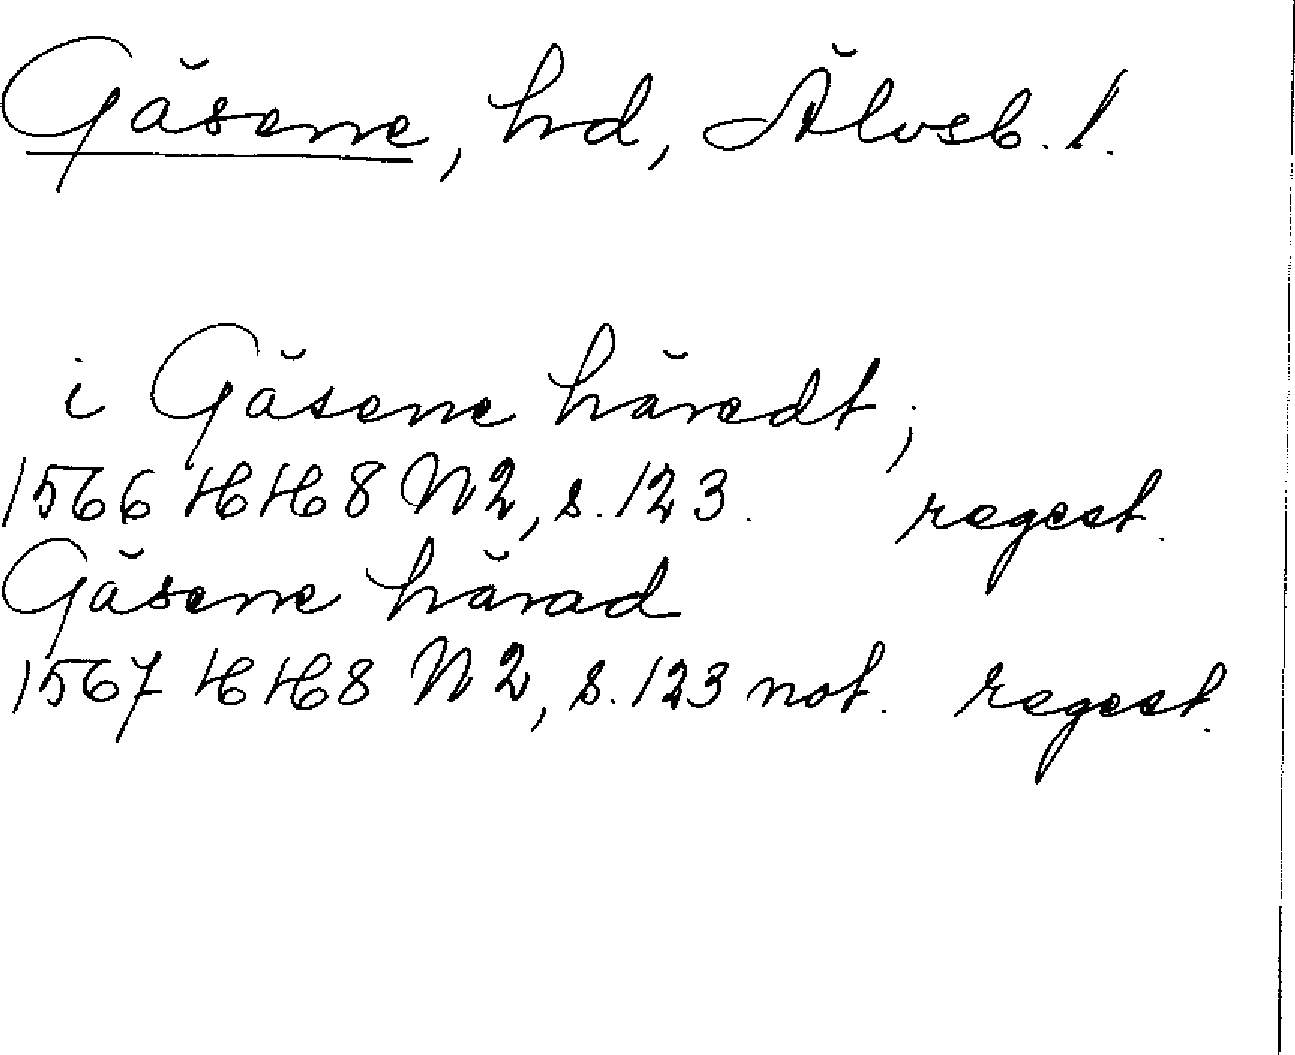 Gäsene, hd, Älvsb. l.
i Gäsene häredt;
1566 HH 8 N 2, s. 123. regest.
Gäsene härad
1567 HH 8 N 2, s. 123 not. regest.